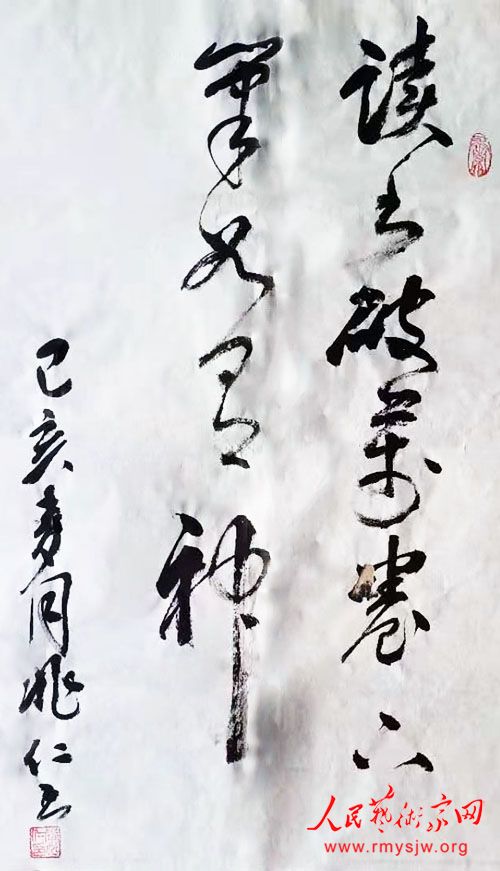 读书破万卷下
笔如有神
己亥春何兆仁书
人民艺术家网
www.rmysjw.org